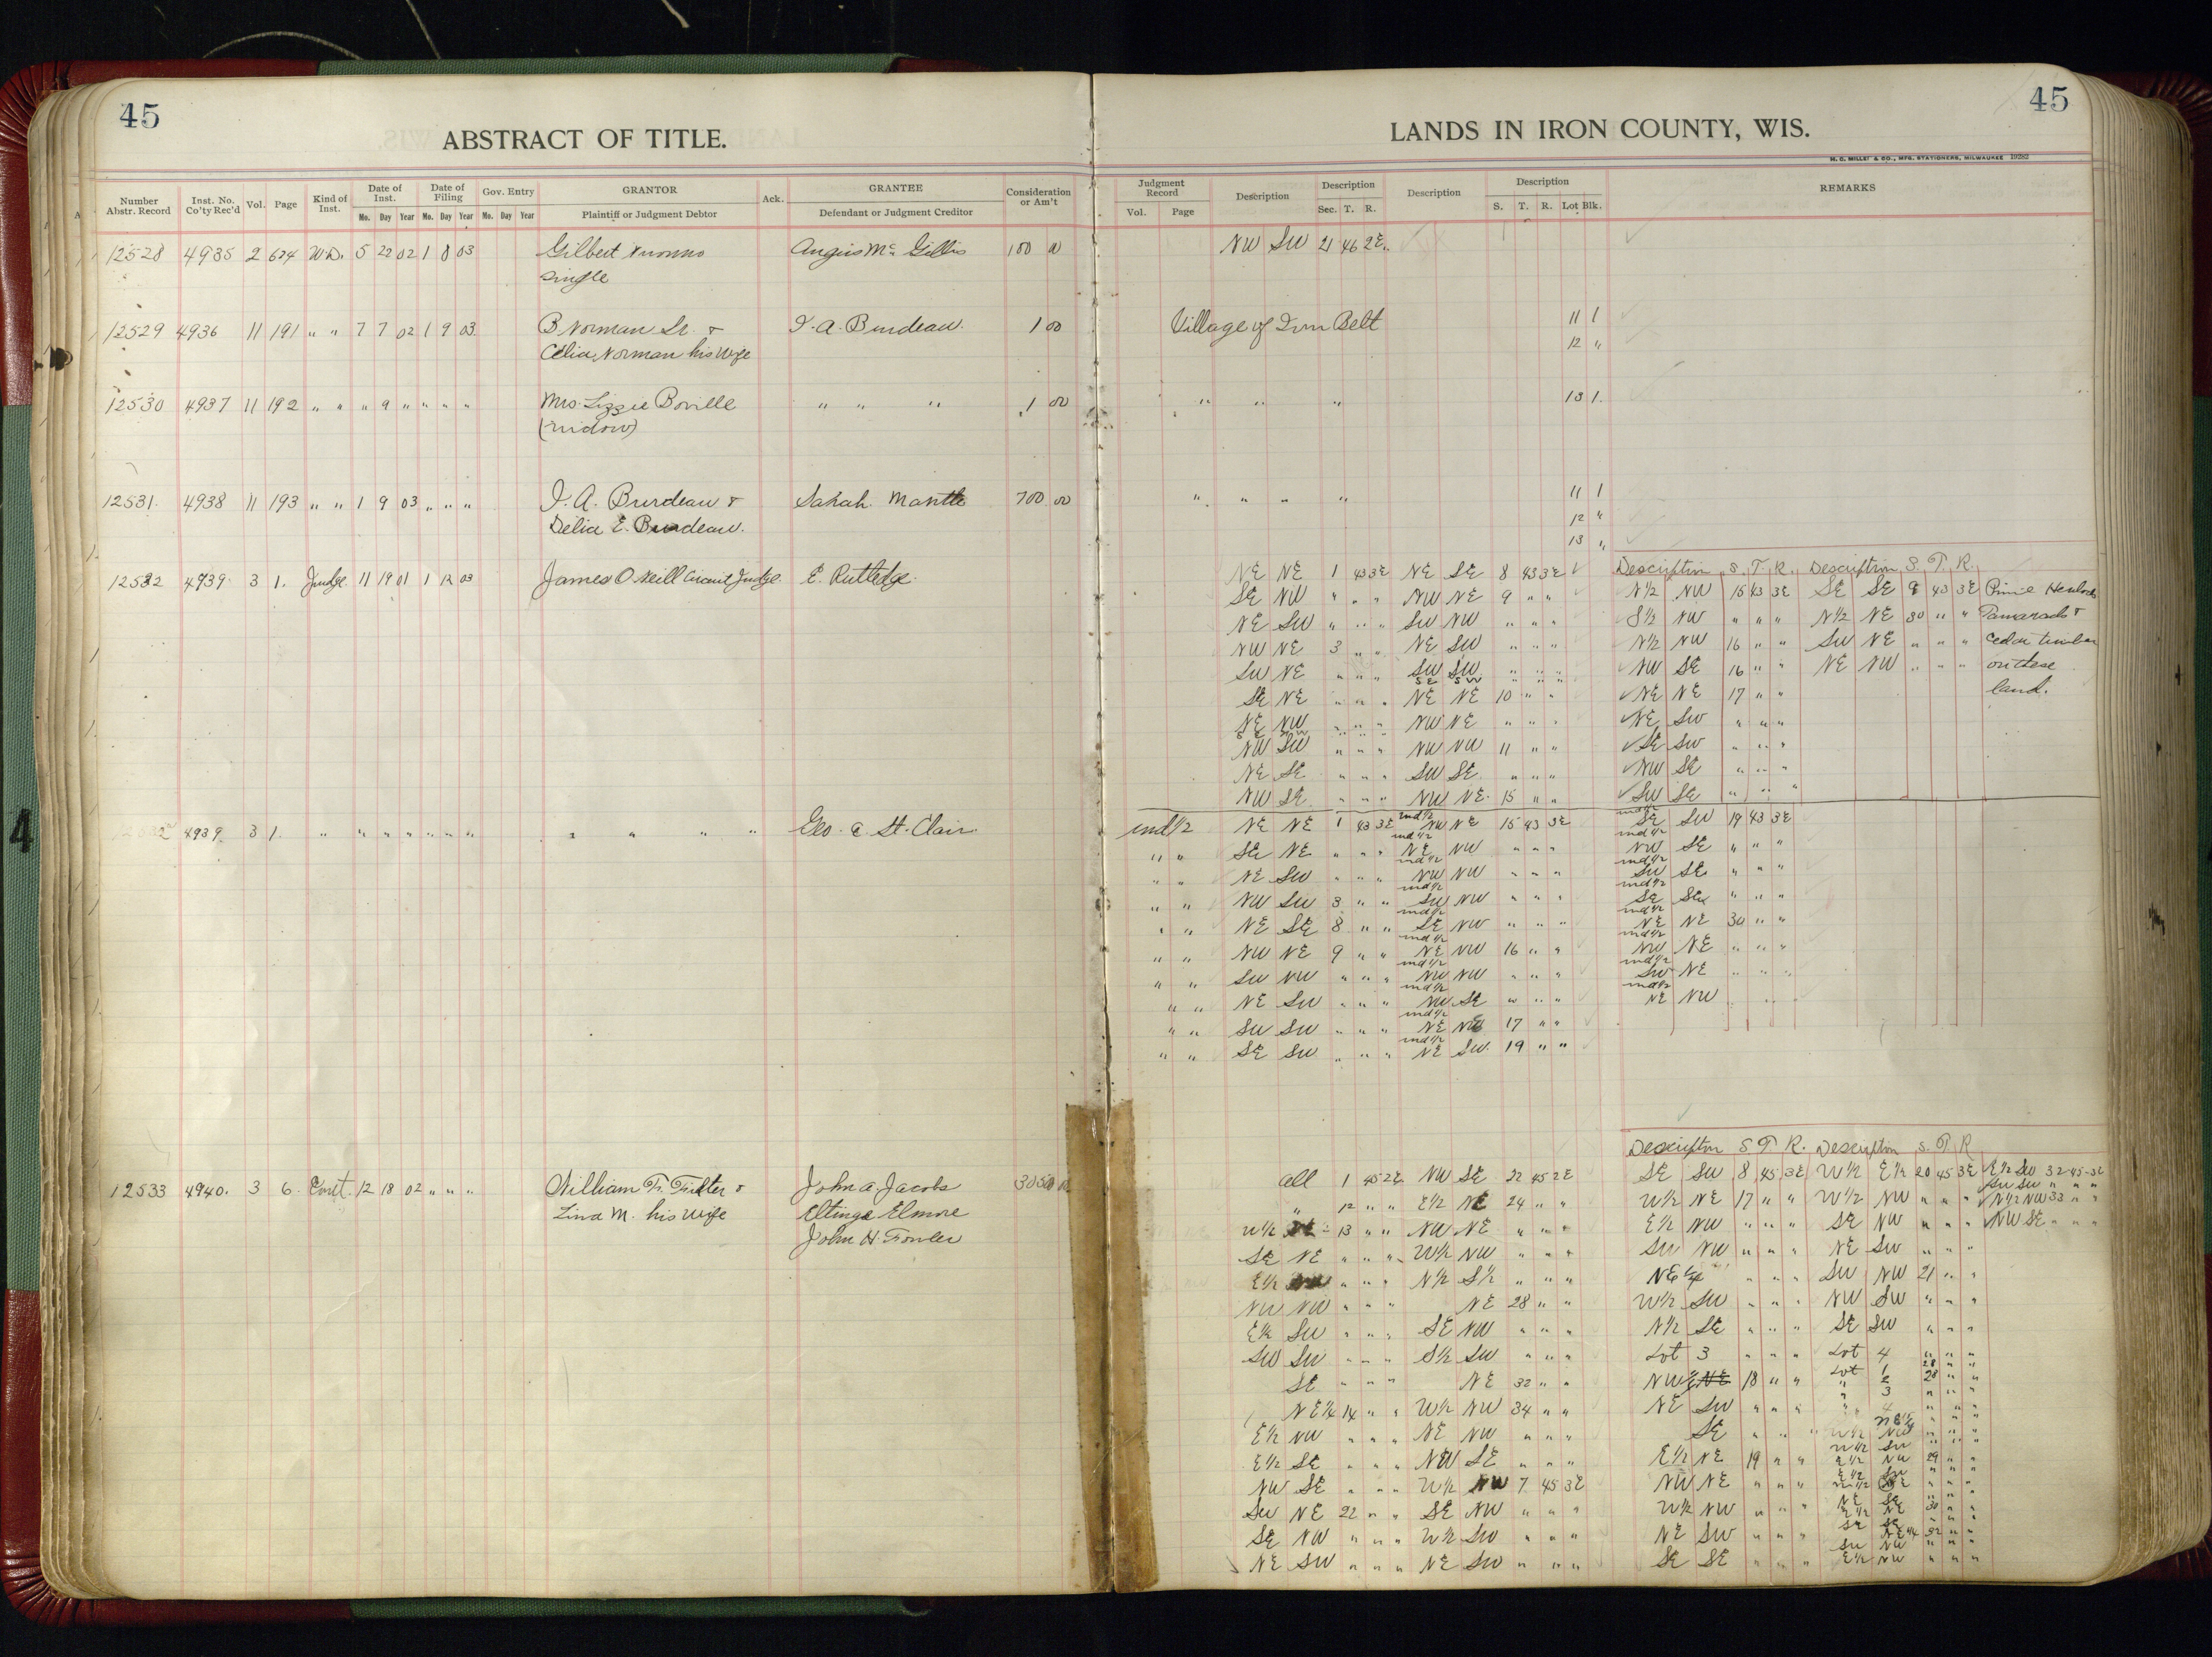 45
ABSTRACT OF TITLE.
Number Abstr. Record | Inst. No. Co'ty Rec'd | Vol. | Page | Kind of Inst. | Date of Inst. Mo. Day Year | Date of Filing Mo. Day Year | Gov. Entry Mo. Day Year | GRANTOR Plaintiff or Judgment Debtor | Ack. | GRANTEE Defendant or Judgment Creditor | Consideration or Am't
12528 4935 2 624 W.D. 5 22 02 1 8 03 Gilbert Angus Mc Gillis 100 00
Single
12529 4936 11 191 " " 7 7 02 1 9 03 B Norman Sr. & I. A. Burdeau. 1 00
Celia Norman his wife
12530 4937 11 192 " " " 9 " " " " Mrs. Lizzie Boville " " " 1 00
(widow)
12531. 4938 11 193 " " 1 9 03 " " " I. A. Burdeau & Sarah Mantle 700 00
Delia E. Burdeau.
12532 4939. 3 1. Judge 11 19 01 1 12 03 James O'Neill Circuit Judge. E. Rutledge.
4939. 3 1. " " " " " " " " " " " Geo. C. St. Clair.
12533 4940. 3 6. Cont. 12 18 02 " " " William & John A. Jacobs
Lina M. his wife Eltinge Elmore
John H. Fowler
45
LANDS IN IRON COUNTY, WIS.
H. C. MILLER & CO., MFG. STATIONERS, MILWAUKEE 19282
Judgment Record Vol. Page | Description | Description Sec. T. R. | Description | Description S. T. R. Lot Blk. | REMARKS
NW SW 21 46 2E.
Village of Iron Belt 11 1
12 "
" " " 13 1.
" " " " 11 1
12 "
13 "
Description S. T. R. Description S. T. R.
NE NE 1 43 3E NE SE 8 43 3E N½ NW 15 43 3E SE SE 9 43 3E Pine Hemlock
SE NW " " " NW NE 9 " " S½ NW " " " N½ NE 30 " " Tamarack &
NE SW " " " SW NW " " " N½ NW 16 " " SW NE " " " Cedar timber
NW NE 3 " " NE SW " " " NW SE 16 " " NE NW " " " on these
SW NE " " " SW SW " " " NE NE 17 " " land.
SE SW " " "
SE NE " " " NE NE 10 " " NE SW " " "
NE NW " " " NW NE " " " SE SW " " "
NW SW " " " NW NW 11 " " NW SE " " "
NE SE " " " SW SE " " " SW SE " " "
NW SE " " " NW NE 15 " "
und ½ NE NE 1 43 3E und ½ NW NE 15 43 3E und ½ SE SW 19 43 3E
" " SE NE " " " und ½ NE NW " " " und ½ NW SE " " "
" " NE SW " " " und ½ NW NW " " " und ½ SW SE " " "
" " NW SW 3 " " und ½ SW NW " " " und ½ SE SE " " "
" " NE SE 8 " " und ½ SE NW " " " und ½ NE NE 30 " "
" " NW NE 9 " " und ½ NE NW 16 " " und ½ NW NE " " "
" " SW NW " " " und ½ NW NW " " " und ½ SW NE " " "
" " NE SW " " " und ½ NW SE " " " und ½ NE NW " " "
" " SW SW " " " und ½ NE 17 " "
" " SE SW " " " und ½ NE SW. 19 " "
Description S T R. Description S. T. R
All 1 45 2E. NW SE 22 45 2E SE SW 8 45 3E W½ E½ 20 45 3E E½ SW 32-45-3E
SW SW " " "
" 12 " " E½ NE 24 " " W½ NE 17 " " W½ NW " " " N½ NW 33 " "
W½ 13 " " NW NE " " " E½ NW " " " SE NW " " " NW SE " " "
SE NE " " " W½ NW " " " SW NW " " " NE SW " " "
E½ " " " N½ S½ " " " NE¼ " " " SW NW 21 " "
NW NW " " " NE 28 " " W½ SW " " " NW SW " " "
E½ SW " " " SE NW " " " N½ SE " " " SE SW " " "
SW SW " " " S½ SW " " " Lot 3 " " " Lot 4 " " "
SE " " " NE 32 " " NW 18 " " Lot 1 28 " "
" 2 28 " "
NE¼ 14 " " W½ NW 34 " " NE SW " " " " 3 " " "
" 4 " " "
E½ NW " " " NE NW " " " SE " " " W½ NW " " "
E½ SE " " " NW SE " " " E½ NE 19 " " W½ SW " " "
NW SE " " " W½ NW 7 45 3E NW NE " " "
SW NE 22 " " SE NW " " " W½ NW " " "
SE NW " " " W½ SW " " " NE SW " " " SW NW " " "
NE SW " " " NE SW " " " SE SE " " " E½ NW " " "